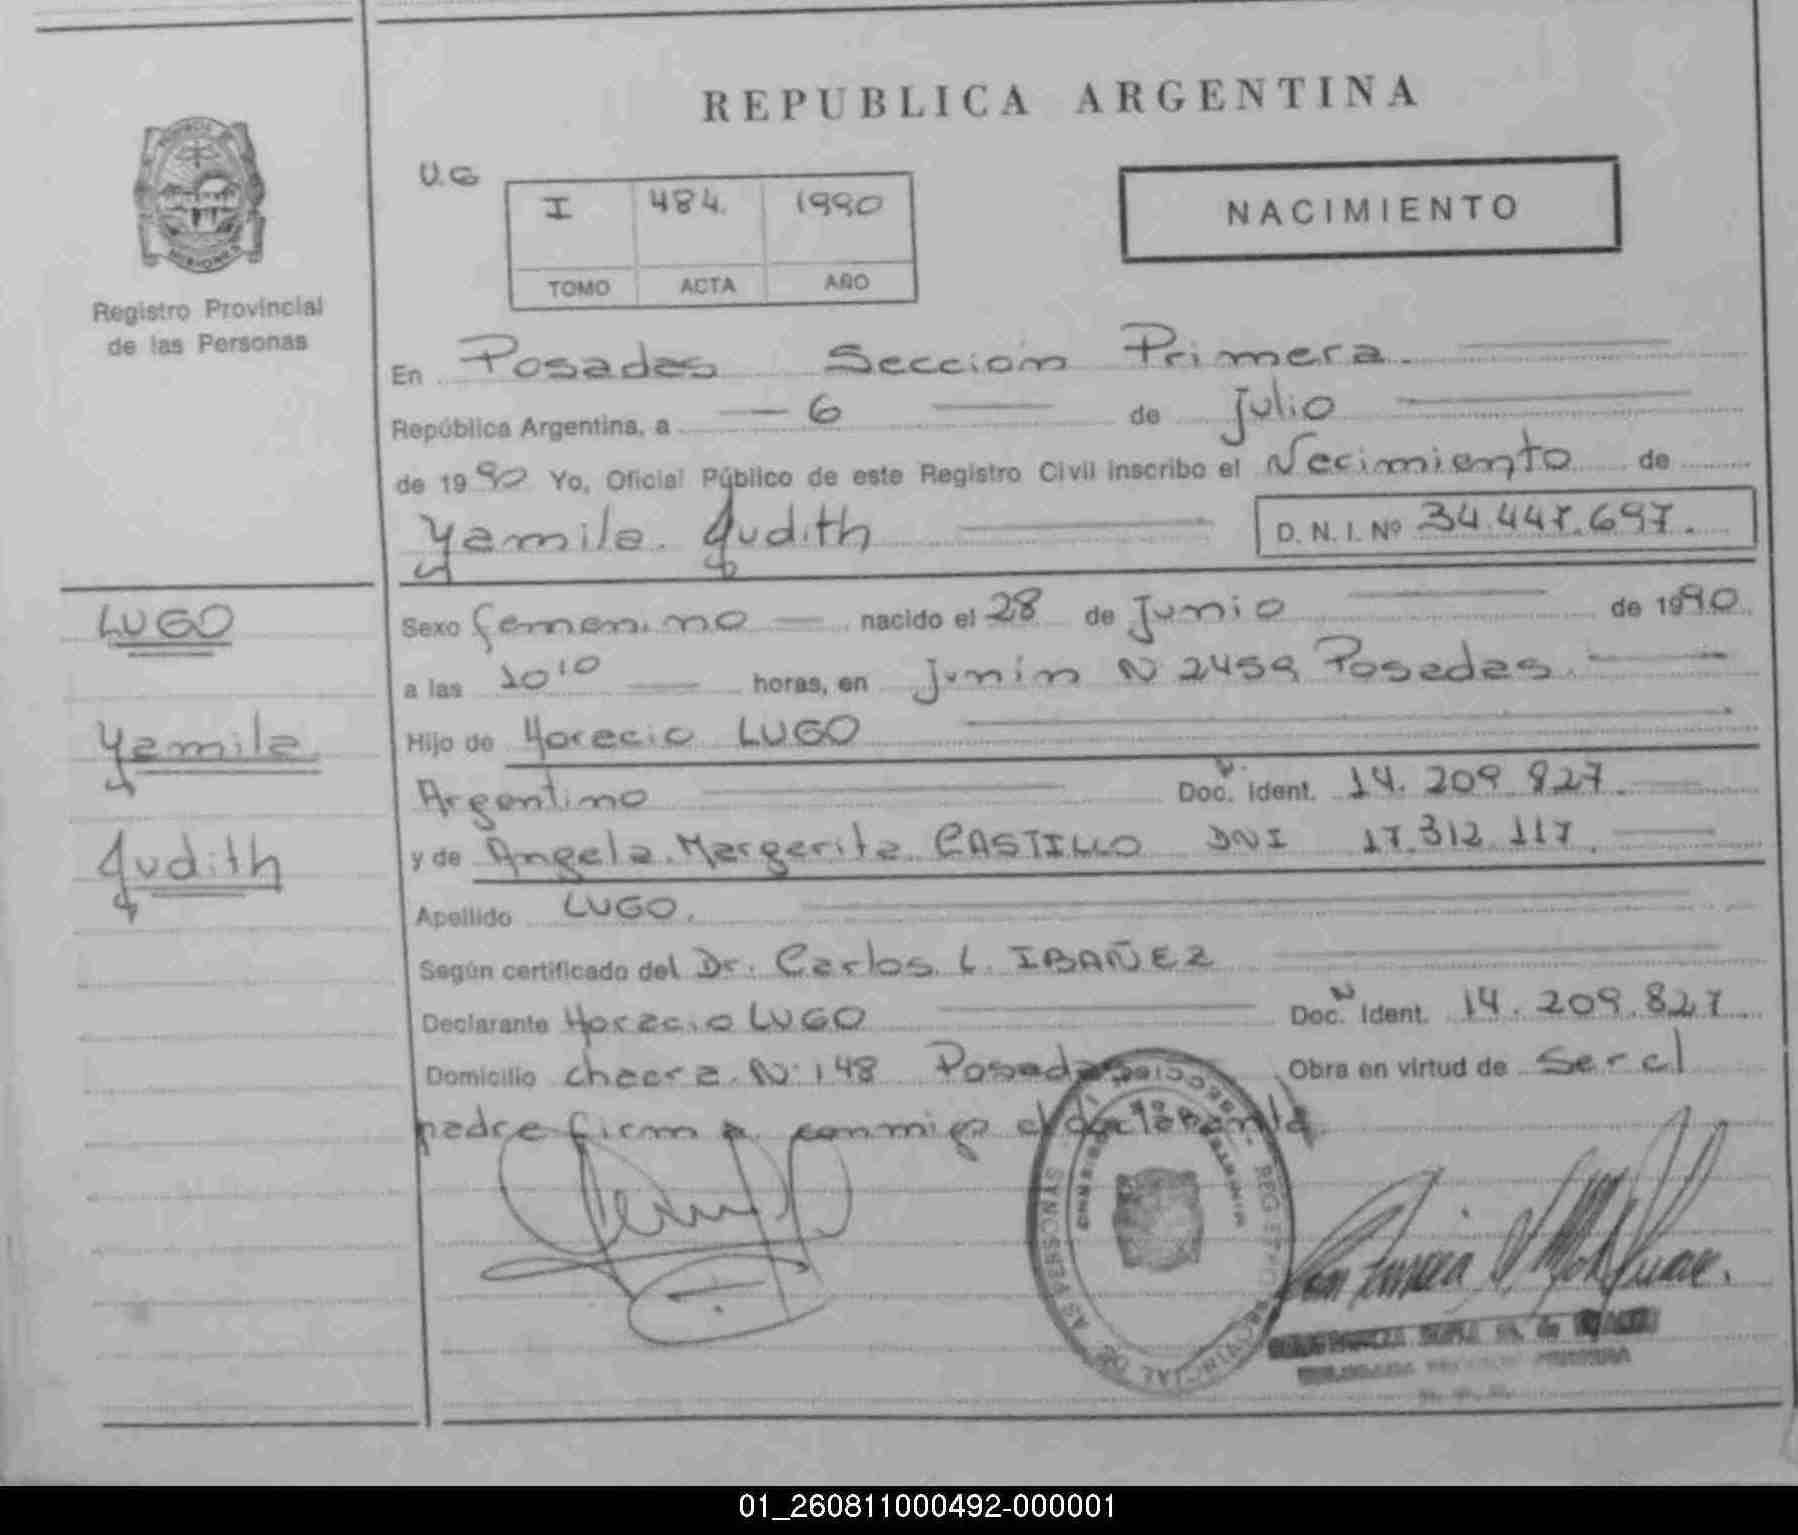 REPUBLICA ARGENTINA
U.G
I 484. 1990
TOMO ACTA AÑO
NACIMIENTO
Registro Provincial
de las Personas
En Posadas Sección Primera.
República Argentina, a 6 de Julio
de 1990 Yo, Oficial Público de este Registro Civil inscribo el Nacimiento de
Yamila Judith D. N. I. Nº 34.447.697.
LUGO
Yamila
Judith
Sexo femenino nacido el 28 de Junio de 1990.
a las 10¹⁰ horas, en Junín N 2459 Posadas.
Hijo de Horacio LUGO
Argentino Doc. Ident. 14.209.827
y de Angela Margarita CASTILLO DNI 17.312.117.
Apellido LUGO.
Según certificado del Dr. Carlos L. IBAÑEZ
Declarante Horacio LUGO Doc. Ident. 14.209.827
Domicilio chacra Nº 148 Posadas Obra en virtud de ser el
padre firma conmigo el declarante
01_260811000492-000001